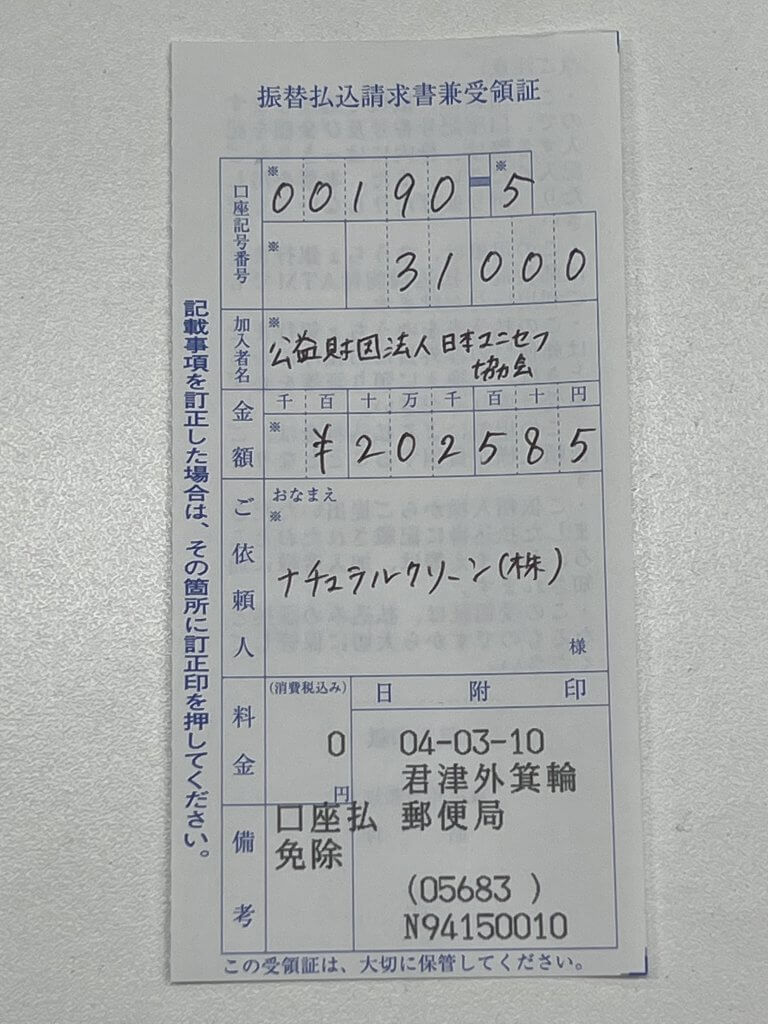 振替払込請求書兼受領証
口座記号番号
※00190-※5
※31000
加入者名
※公益財団法人 日本ユニセフ
協会
金額
千百十万千百十円
※¥202585
ご依頼人
おなまえ
※
ナチュラルクリーン(株)
様
料金
(消費税込み)
0
円
日附印
04-03-10
君津外箕輪
郵便局
(05683 )
N94150010
備考
口座払
免除
記載事項を訂正した場合は、その箇所に訂正印を押してください。
この受領証は、大切に保管してください。